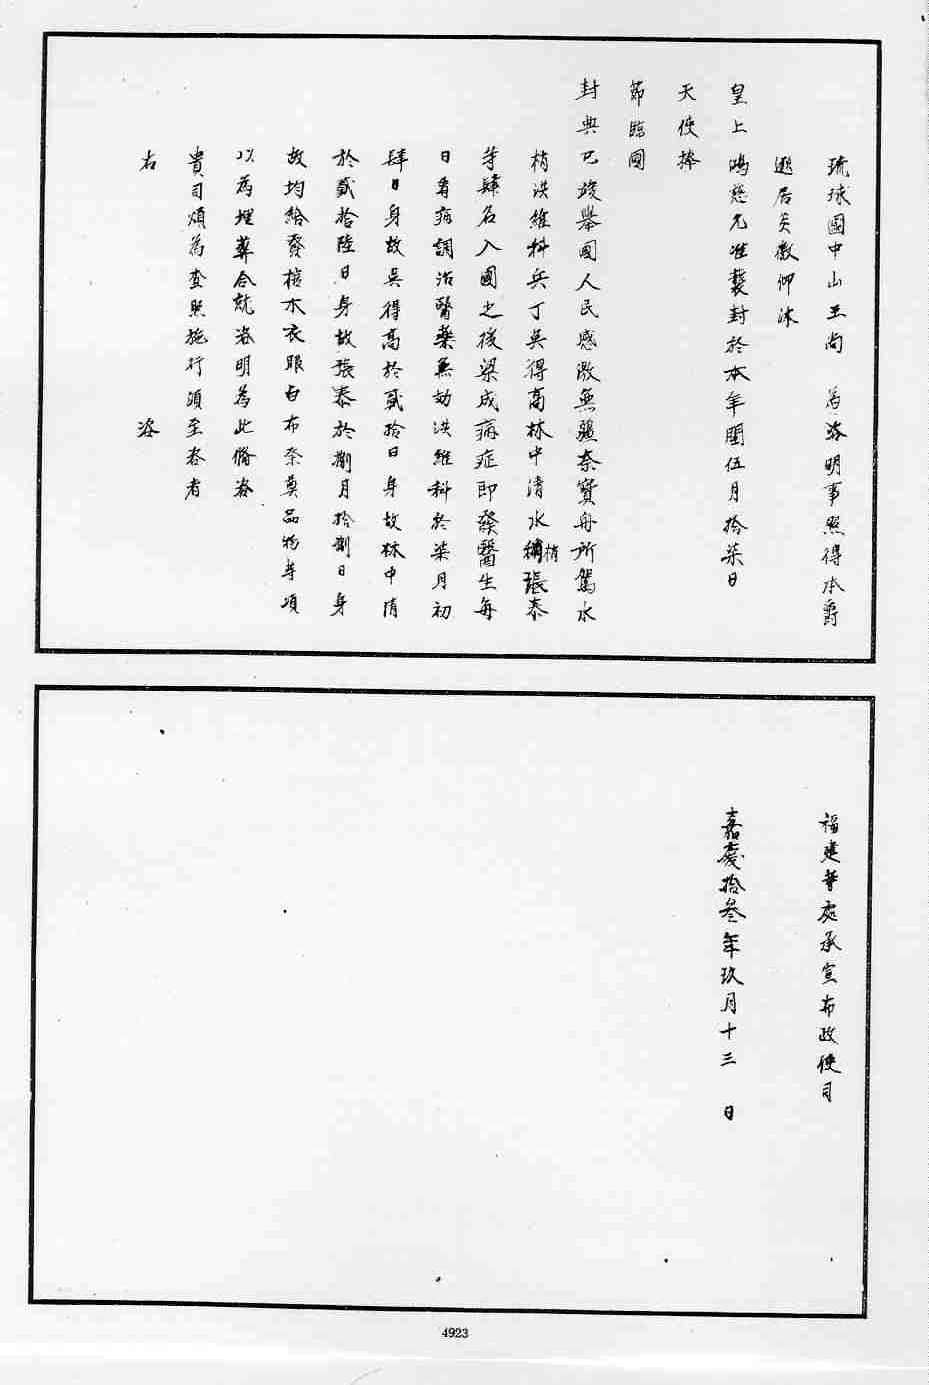 琉球國中山王尚　為咨明事照得本爵
遯居炎徼仰沐
皇上鴻慈允准襲封於本年閏伍月拾柒日
天使捧
節臨國
封典已竣舉國人民感激無疆奈寶舟所駕水
梢洪維科兵丁吳得高林中清水稍梢張泰
等肆名入國之後染成病症即發醫生每
日看病調治醫藥無効洪維科於柒月初
肆日身故吳得高於貳拾日身故林中清
於貳拾陸日身故張泰於捌月拾捌日身
故均給發棺木衣服白布祭奠品物等項
以為埋葬合就咨明為此備咨
貴司煩為查照施行須至咨者
右　咨
福建等處承宣布政使司
嘉慶拾叁年玖月十三　日
4923